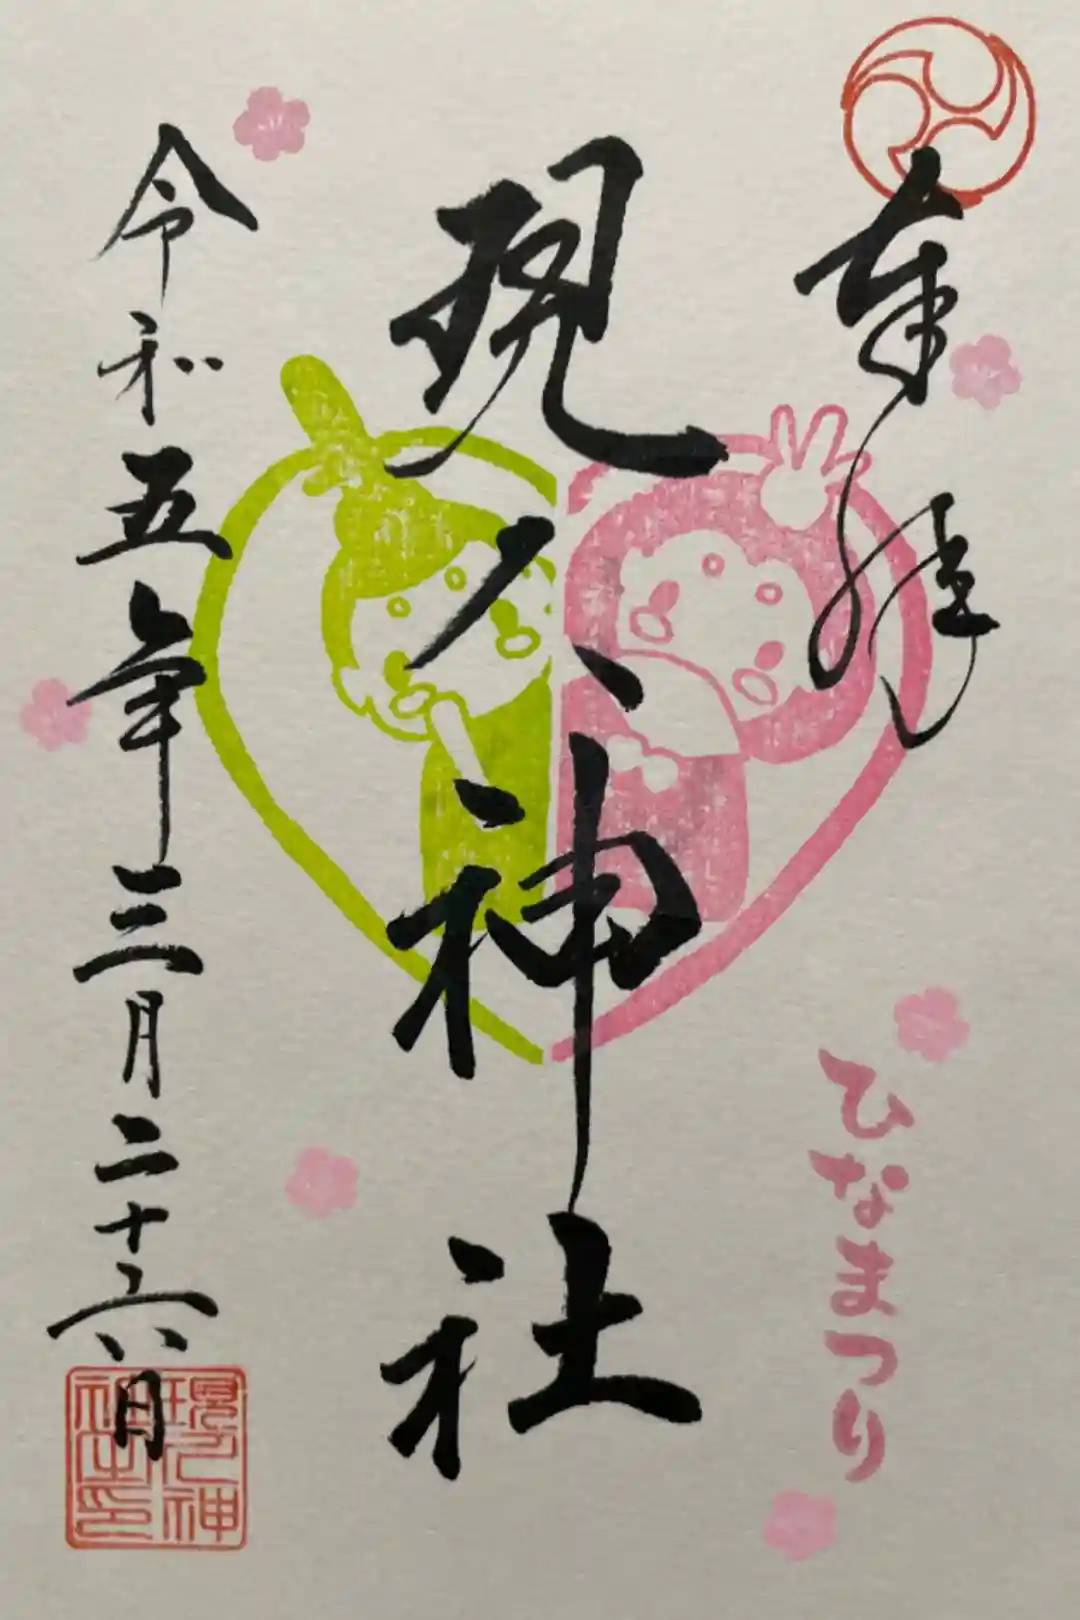 奉拝
ひなまつり
現人神社
令和五年三月二十六日
現人神
社之印